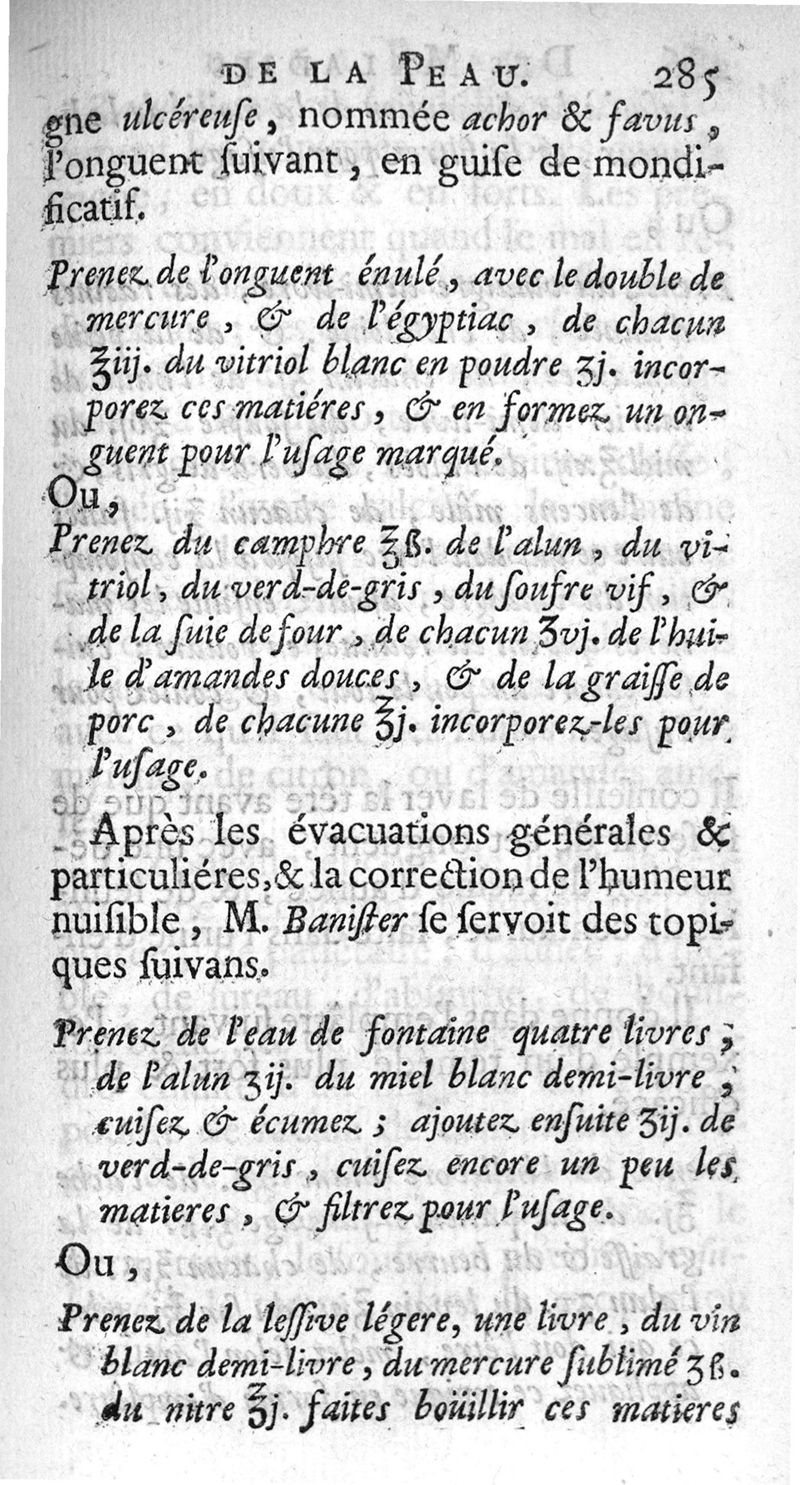 DE LA PEAU. 285
gne ulcéreuſe, nommée achor & favus,
l'onguent ſuivant, en guiſe de mondi-
ficatif.
Prenez de l'onguent énulé, avec le double de
mercure, & de l'égyptiac, de chacun
℥iij. du vitriol blanc en poudre ʒj. incor-
porez ces matiéres, & en formez un on-
guent pour l'uſage marqué.
Ou,
Prenez du camphre ℥ß. de l'alun, du vi-
triol, du verd-de-gris, du ſoufre vif, &
de la ſuie de four, de chacun ʒvj. de l'hui-
le d'amandes douces, & de la graiſſe de
porc, de chacune ℥j. incorporez-les pour
l'uſage.
Après les évacuations générales &
particuliéres, & la correction de l'humeur
nuiſible, M. Baniſter ſe ſervoit des topi-
ques ſuivans.
Prenez de l'eau de fontaine quatre livres,
de l'alun ʒij. du miel blanc demi-livre,
cuiſez & écumez; ajoutez enſuite ʒij. de
verd-de-gris, cuiſez encore un peu les
matieres, & filtrez pour l'uſage.
Ou,
Prenez de la leſſive légere, une livre, du vin
blanc demi-livre, du mercure ſublimé ʒß.
du nitre ℥j. faites boüillir ces matieres